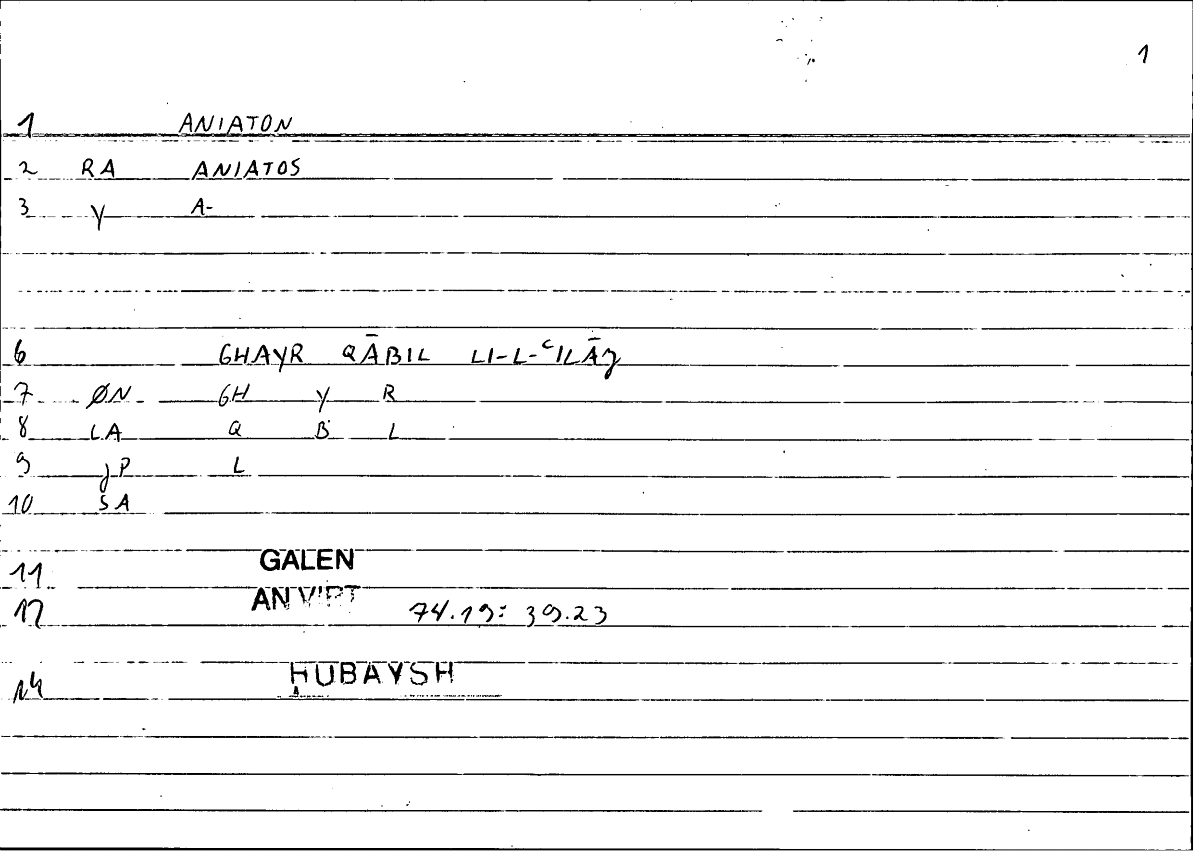 1
1 ANIATON
2 RA ANIATOS
3 Y A-
6 GHAYR QĀBIL LI-L-ʿILĀJ
7 ØN GH Y R
8 LA Q B L
9 JP L
10 SA
11 GALEN
12 AN VIRT 74.19: 39.23
14 ḤUBAYSH